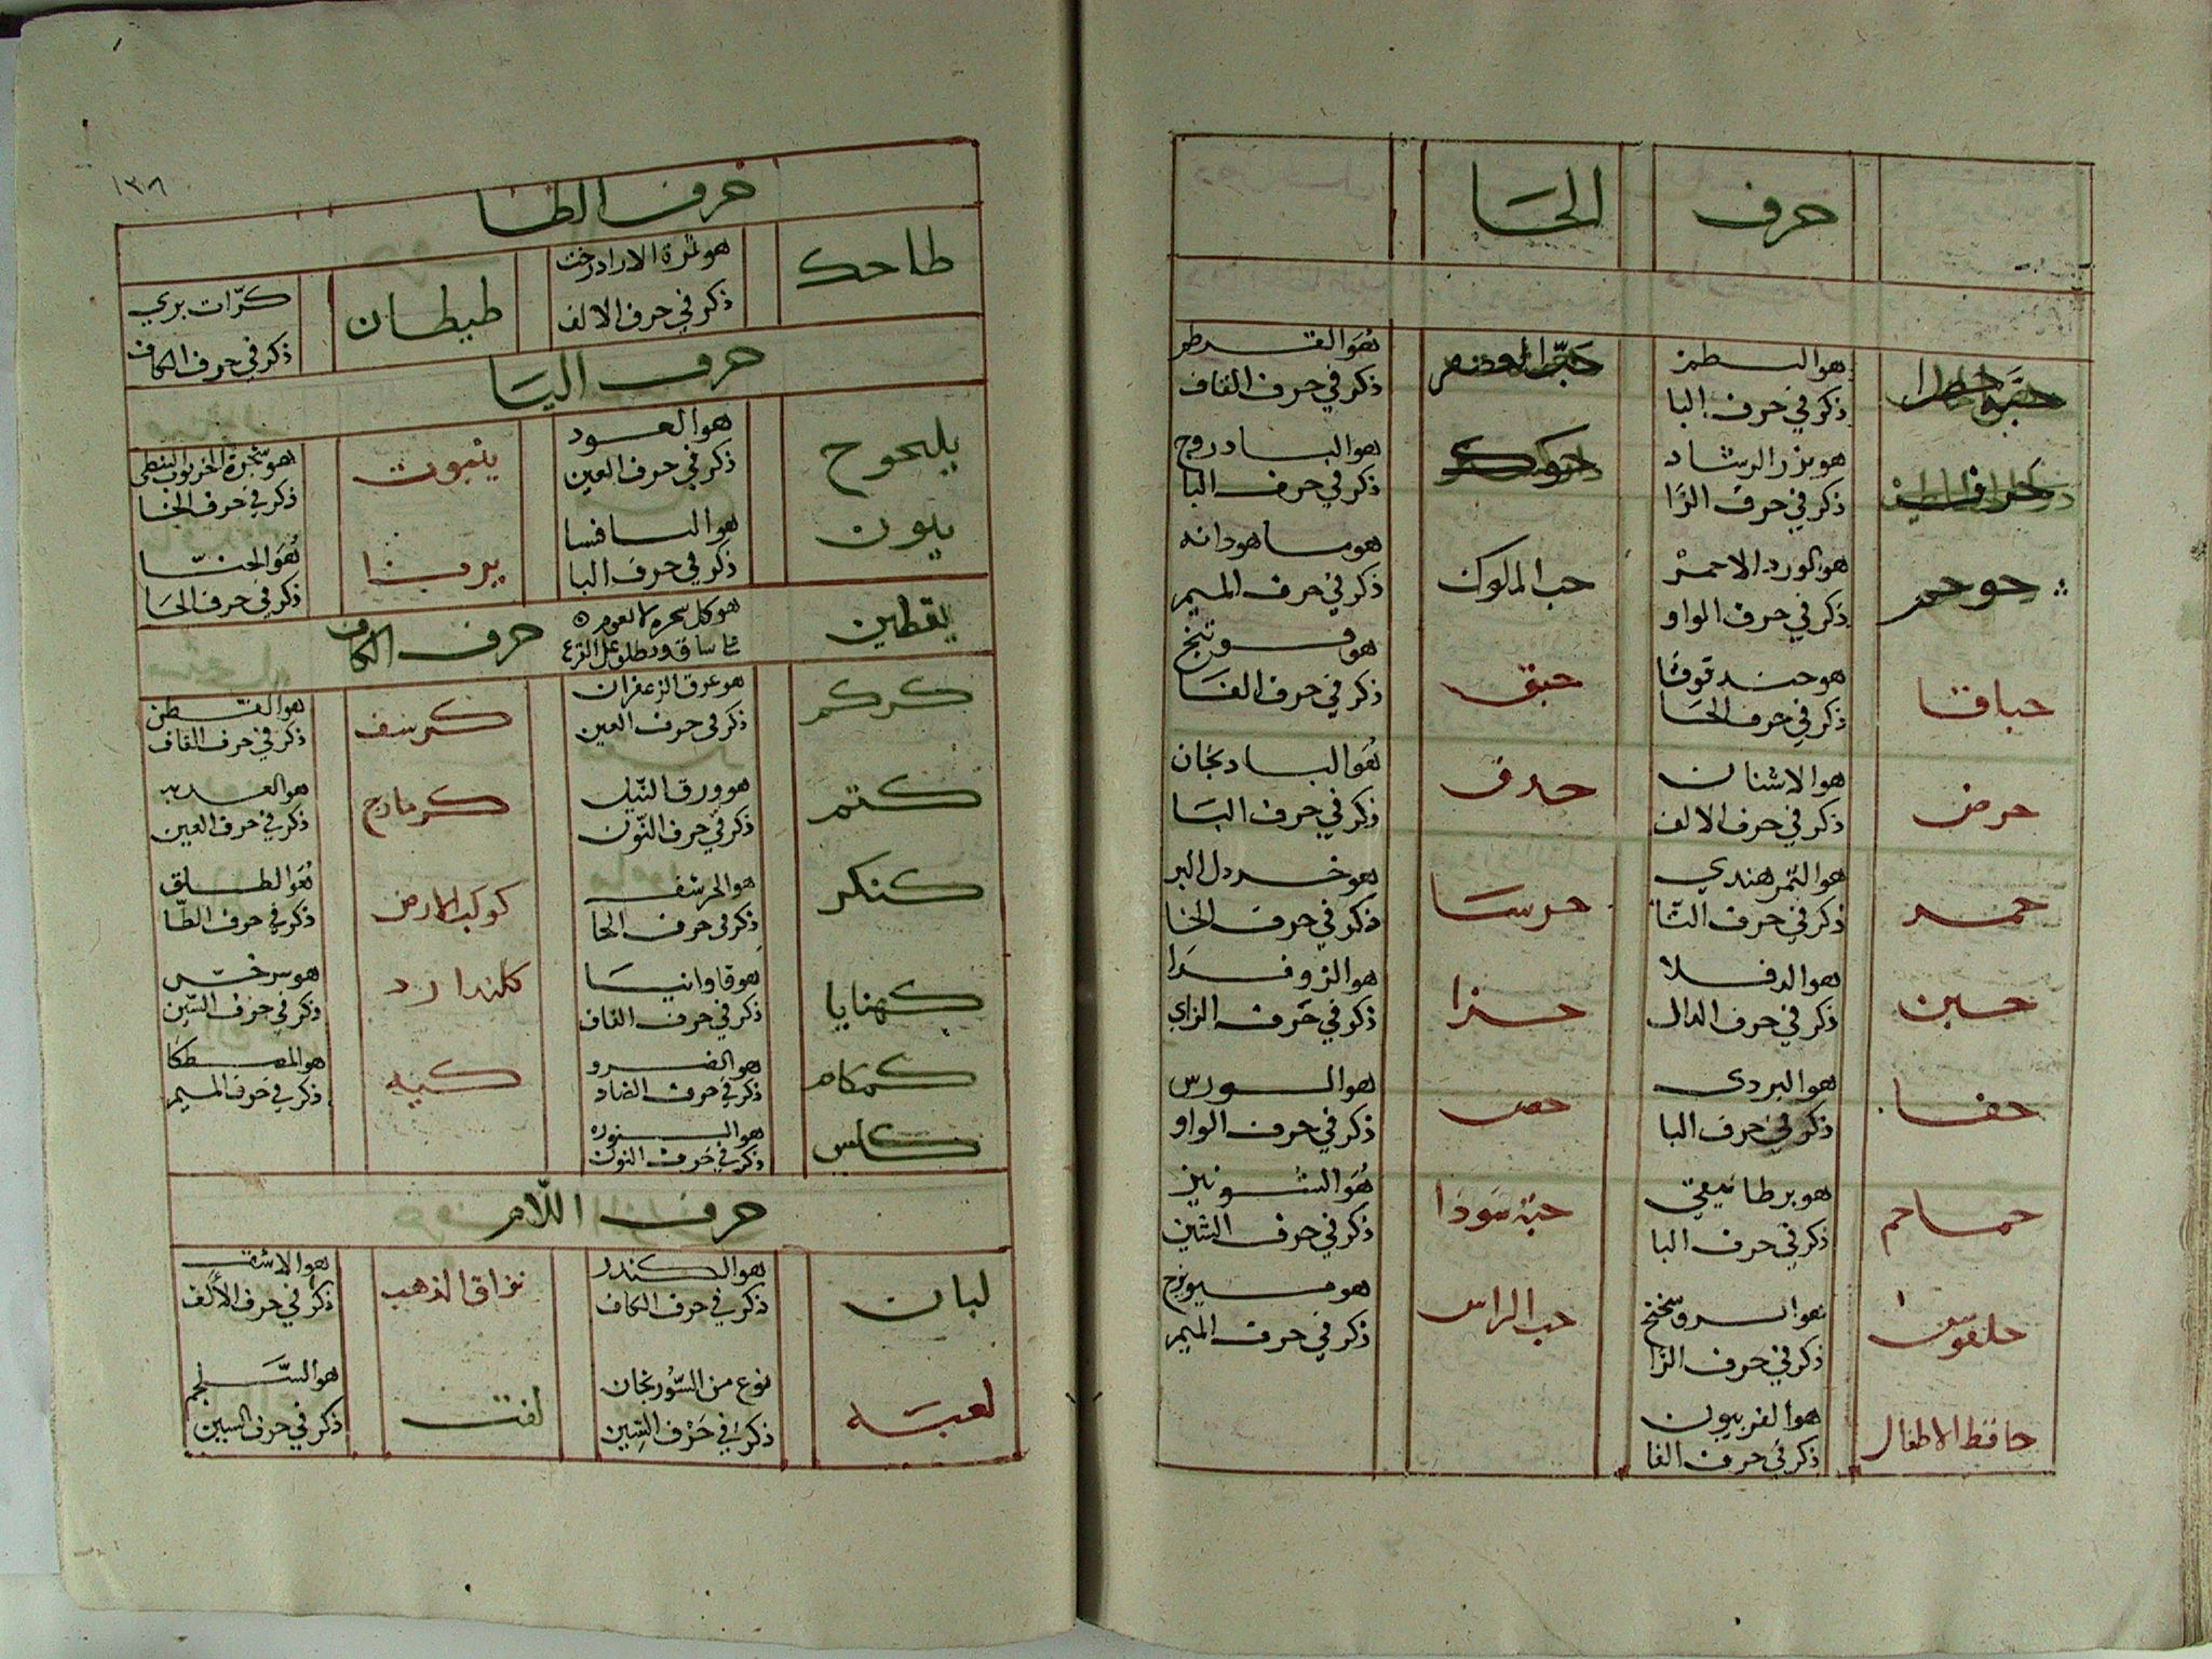 حرف الحا
هو البطم
ذكر في حرف البا
هو القرطم
ذكر في حرف القاف
هو بزر الرشاد
ذكر في حرف الرا
حوك
هو البادروج
ذكر في حرف البا
حوجم
هو الورد الاحمر
ذكر في حرف الواو
حب الملوك
هو ماهودانه
ذكر في حرف الميم
حباقا
هو حندقوقا
ذكر في حرف الحا
حبق
هو فوتنج
ذكر في حرف الفا
حرض
هو الاشنان
ذكر في حرف الالف
حدق
هو البادنجان
ذكر في حرف البا
حمر
هو التمر هندي
ذكر في حرف التا
حرسا
هو خردل البر
ذكر في حرف الخا
حبن
هو الدفلا
ذكر في حرف الدال
حزا
هو الزوفرا
ذكر في حرف الزاي
حفا
هو البردي
ذكر في حرف البا
حص
هو الورس
ذكر في حرف الواو
حماحم
ذكر في حرف البا
حبة سودا
هو الشونيز
ذكر في حرف الشين
حلقوس
هو الروسختج
ذكر في حرف الرا
حب الراس
هو ميويزج
ذكر في حرف الميم
حافظ الاطفال
هو الفربيون
ذكر في حرف الفا
١٣٨
حرف الطا
طاحك
هو ثمرة الازادرخت
ذكر في حرف الالف
طيطان
كرّاث بري
ذكر في حرف الكاف
حرف اليا
يلنجوح
هو العود
ذكر في حرف العين
ينبوت
هو شجرة الخرنوب النبطي
ذكر في حرف الخا
يبون
هو اليافسا
ذكر في حرف البا
يرنا
هو الحنّا
ذكر في حرف الحا
يقطين
حرف الكاف
كركم
هو عرق الزعفران
ذكر في حرف العين
كرسف
هو القطن
ذكر في حرف القاف
كتم
هو ورق النيل
ذكر في حرف النون
كزمازج
هو العذبه
ذكر في حرف العين
كنكر
هو الحرشف
ذكر في حرف الحا
كوكب الارض
هو الطلق
ذكر في حرف الطا
كهنايا
هو فاوانيا
ذكر في حرف الفاف
كلندارد
هو سرخس
ذكر في حرف السين
كمكام
هو الضرو
ذكر في حرف الضاد
كيه
هو المصطكا
ذكر في حرف الميم
كلس
هو النوره
ذكر في حرف النون
حرف اللام
لبان
هو الكندر
ذكر في حرف الكاف
لزاق الذهب
هو الاشق
ذكر في حرف الألف
لعبه
نوع من السّورنجان
ذكر في حرف السين
لفت
هو السّلجم
ذكر في حرف السين